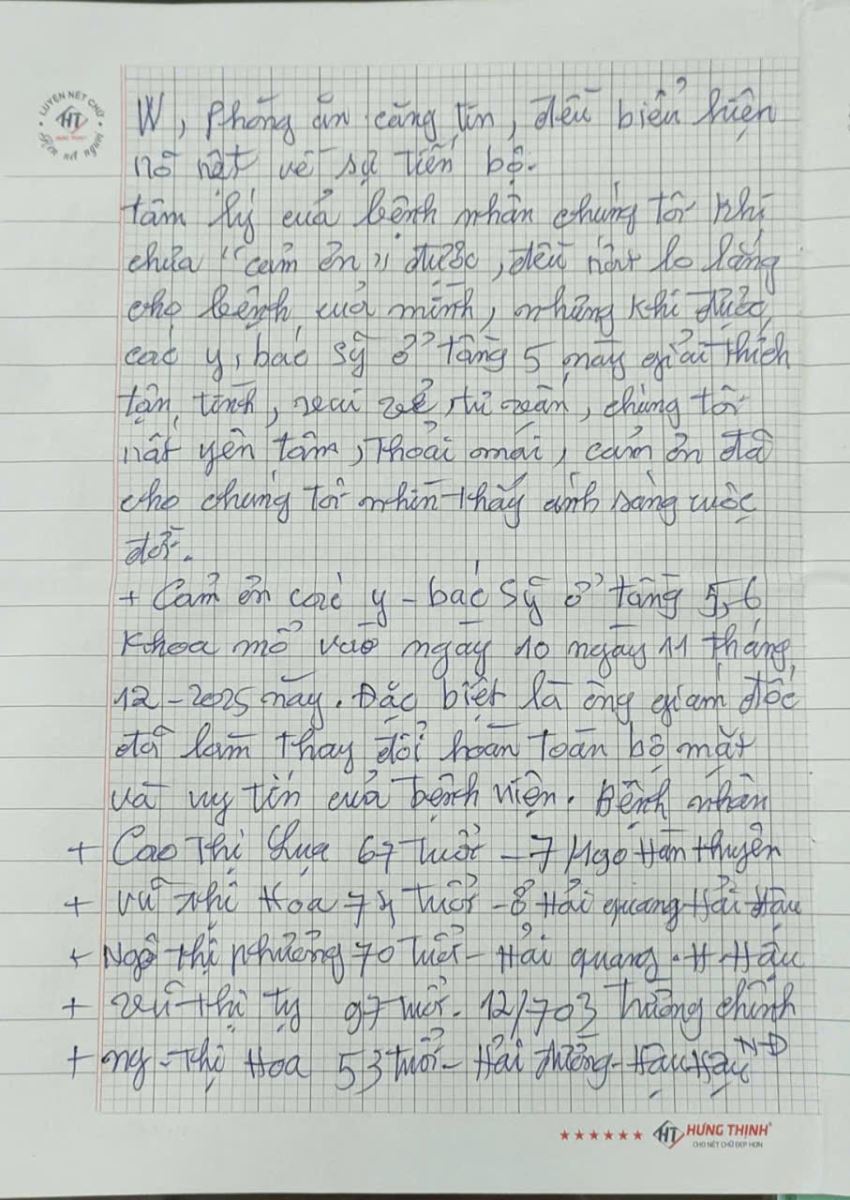 LUYỆN NÉT CHỮ
HT
HƯNG THỊNH
Rèn nết người
W, phòng ăn căng tin, đều biểu hiện
rõ rệt về sự tiến bộ.
tâm lý của bệnh nhân chúng tôi khi
chưa "cảm ơn" được, đều rất lo lắng
cho bệnh của mình, nhưng khi được
các y, bác sỹ ở tầng 5 này giải thích
tận tình, vui vẻ, tư vấn, chúng tôi
rất yên tâm, thoải mái, cảm ơn đã
cho chúng tôi nhìn thấy ánh sáng cuộc
đời.
+ Cảm ơn các y - bác sỹ ở tầng 5, 6
khoa mổ vào ngày 10 ngày 11 tháng
12-2025 này. Đặc biệt là ông giám đốc
đã làm thay đổi hoàn toàn bộ mặt
và uy tín của bệnh viện. Bệnh nhân
+ Cao Thị Lụa 67 tuổi - 7 Ngõ Hàn Thuyên
+ Vũ Thị Hoa 74 tuổi - 8 Hải Quang Hải Hậu
+ Ngô Thị Phưởng 70 tuổi - Hải Quang. H. Hậu
+ Vũ Thị Tỵ 97 tuổi. 12/703 Trường Chinh
+ Ng. Thị Hoa 53 tuổi - Hải Đường - Hậu N-Đ
HT HƯNG THỊNH
CHO NÉT CHỮ ĐẸP HƠN